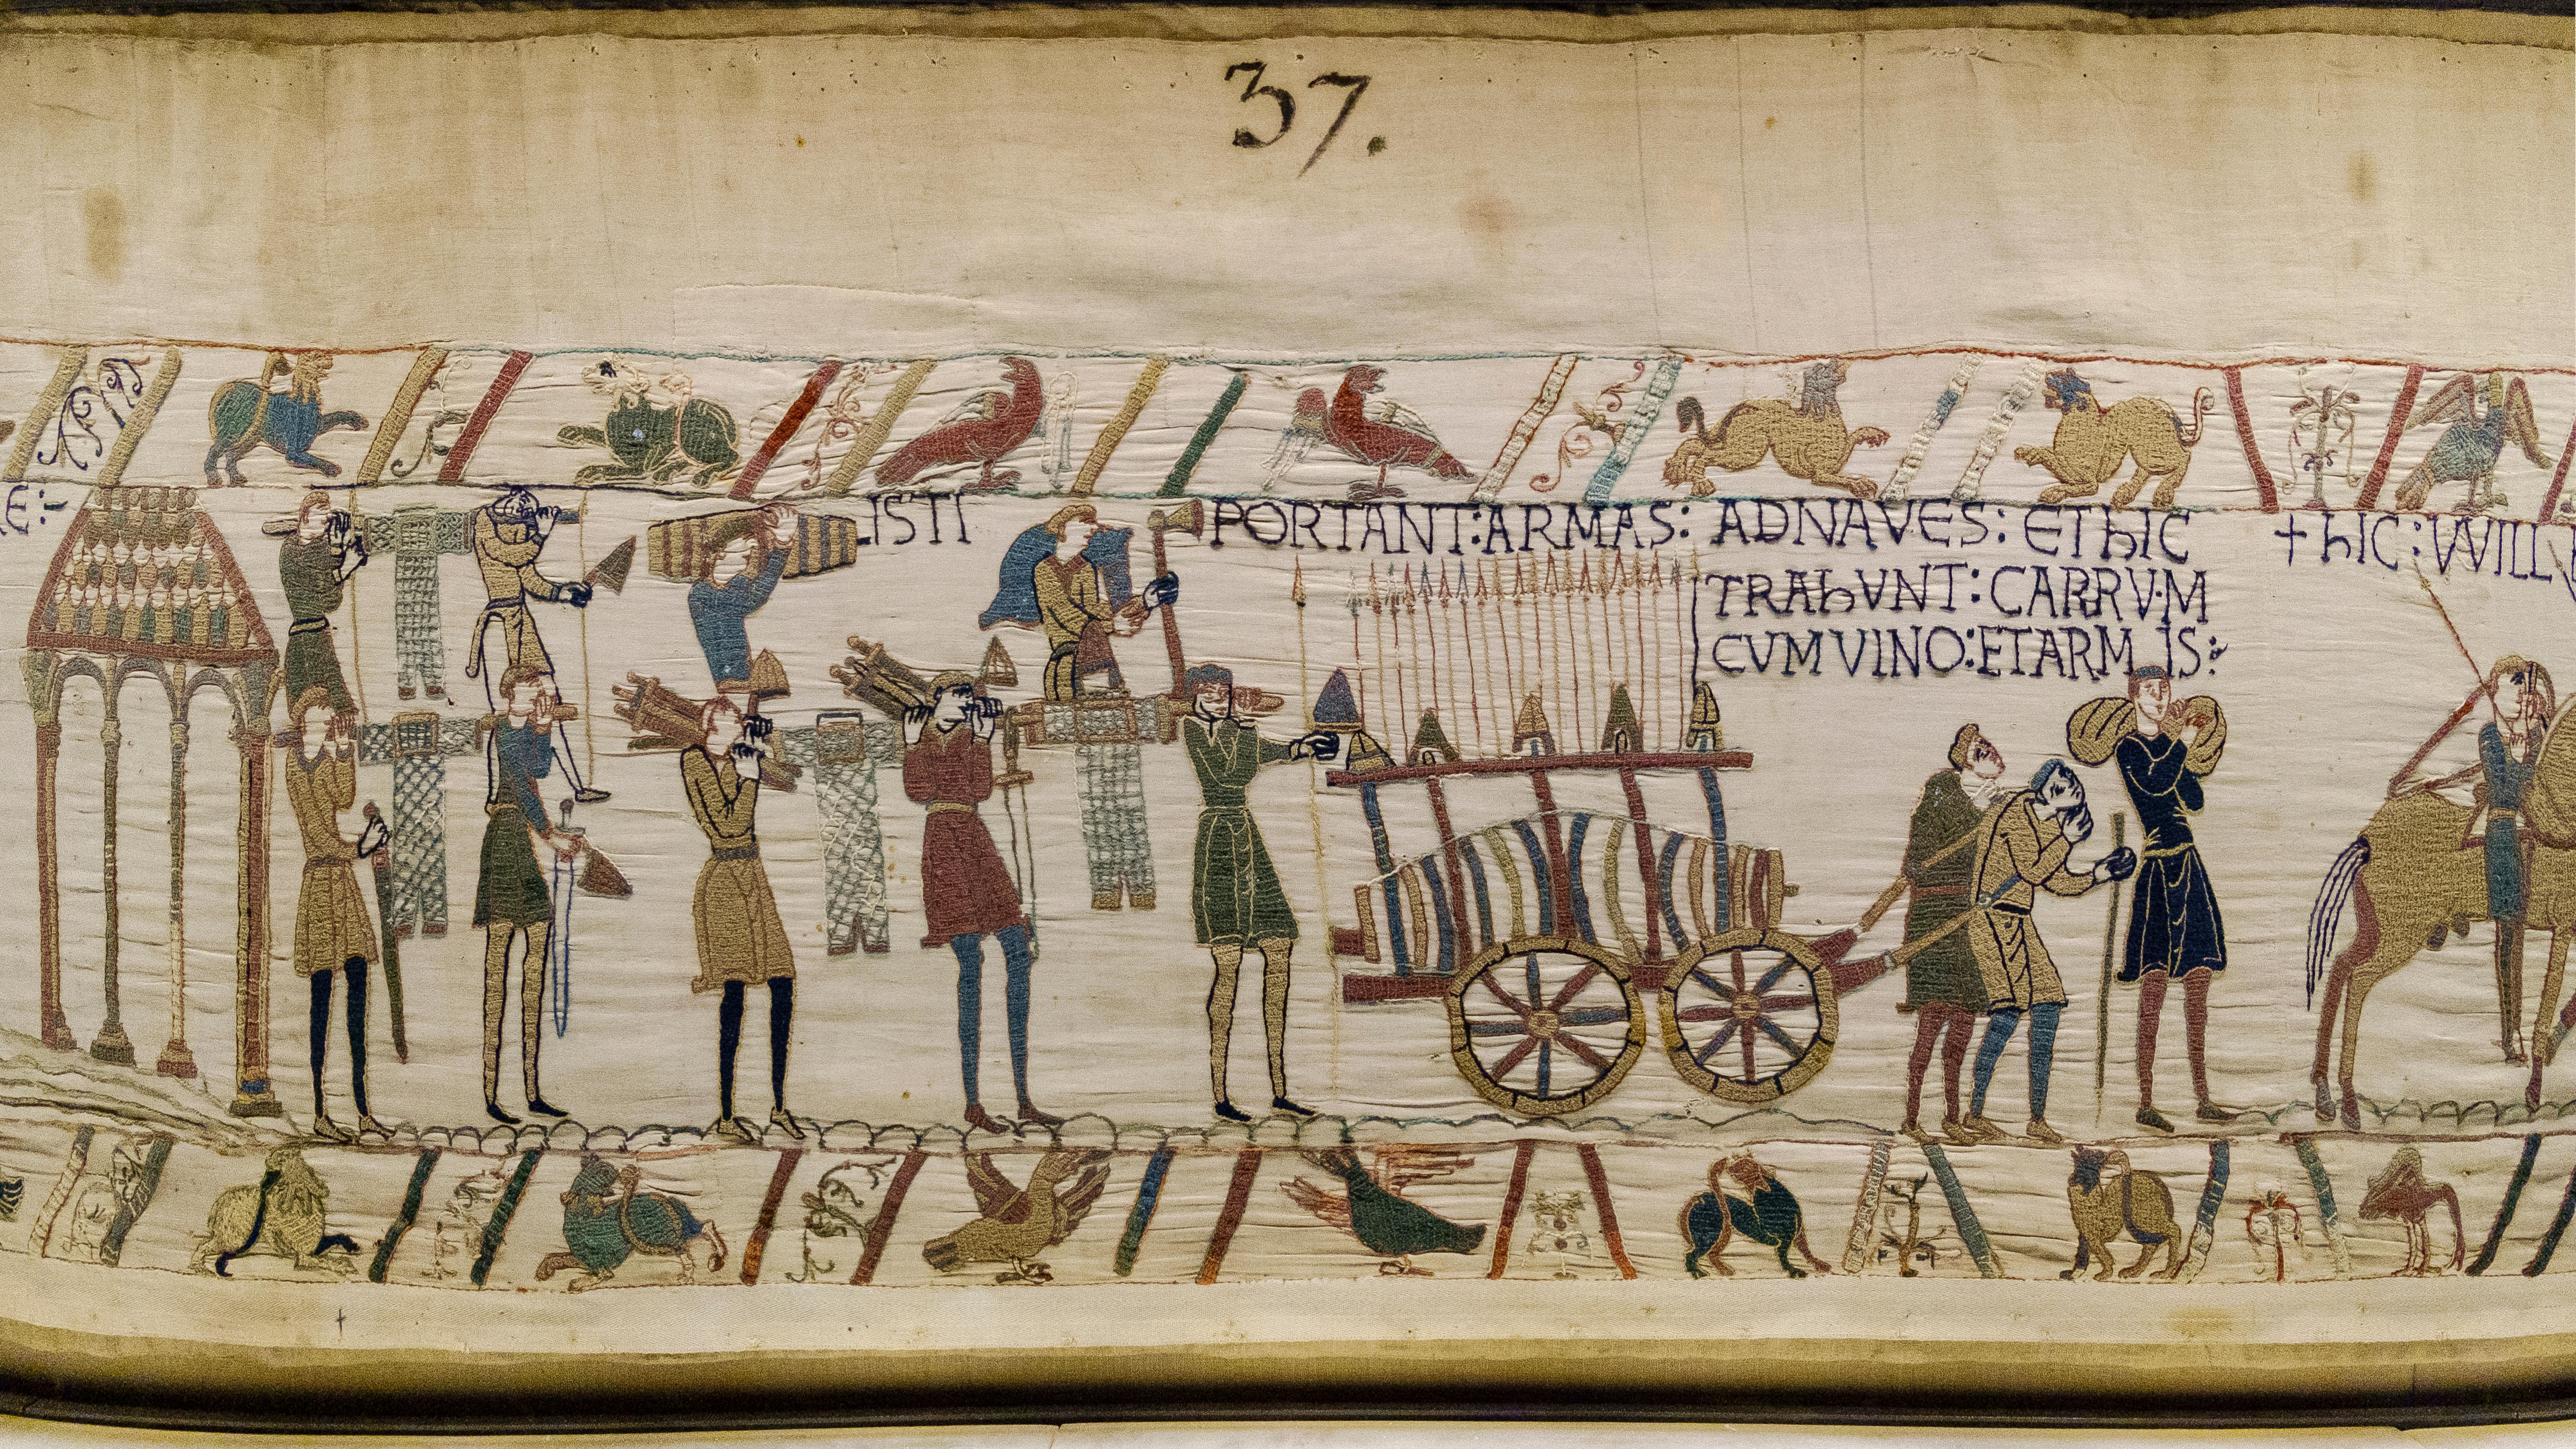 37.
E:
ISTI PORTANT:ARMAS: ADNAVES: EThIC
TRAhVNT: CARRVM
CVMVINO:ETARMIS:
+hIC:VVILL